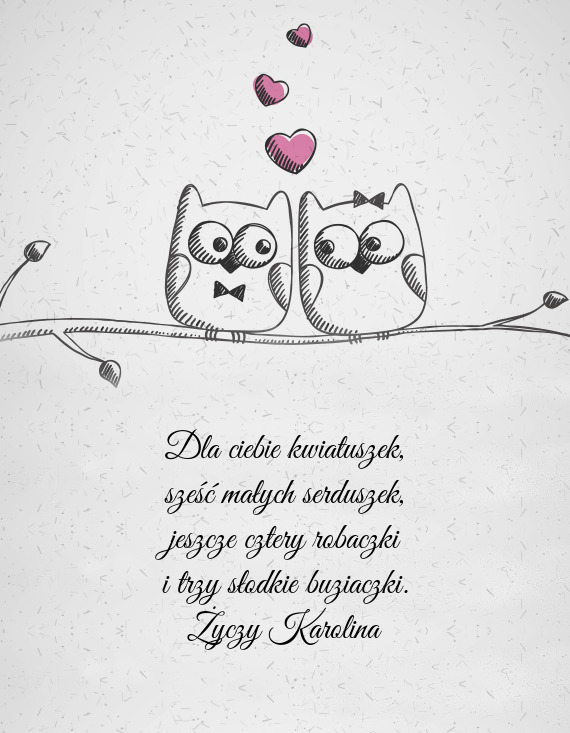 Dla ciebie kwiatuszek,
sześć małych serduszek,
jeszcze cztery robaczki
i trzy słodkie buziaczki.
Życzy Karolina